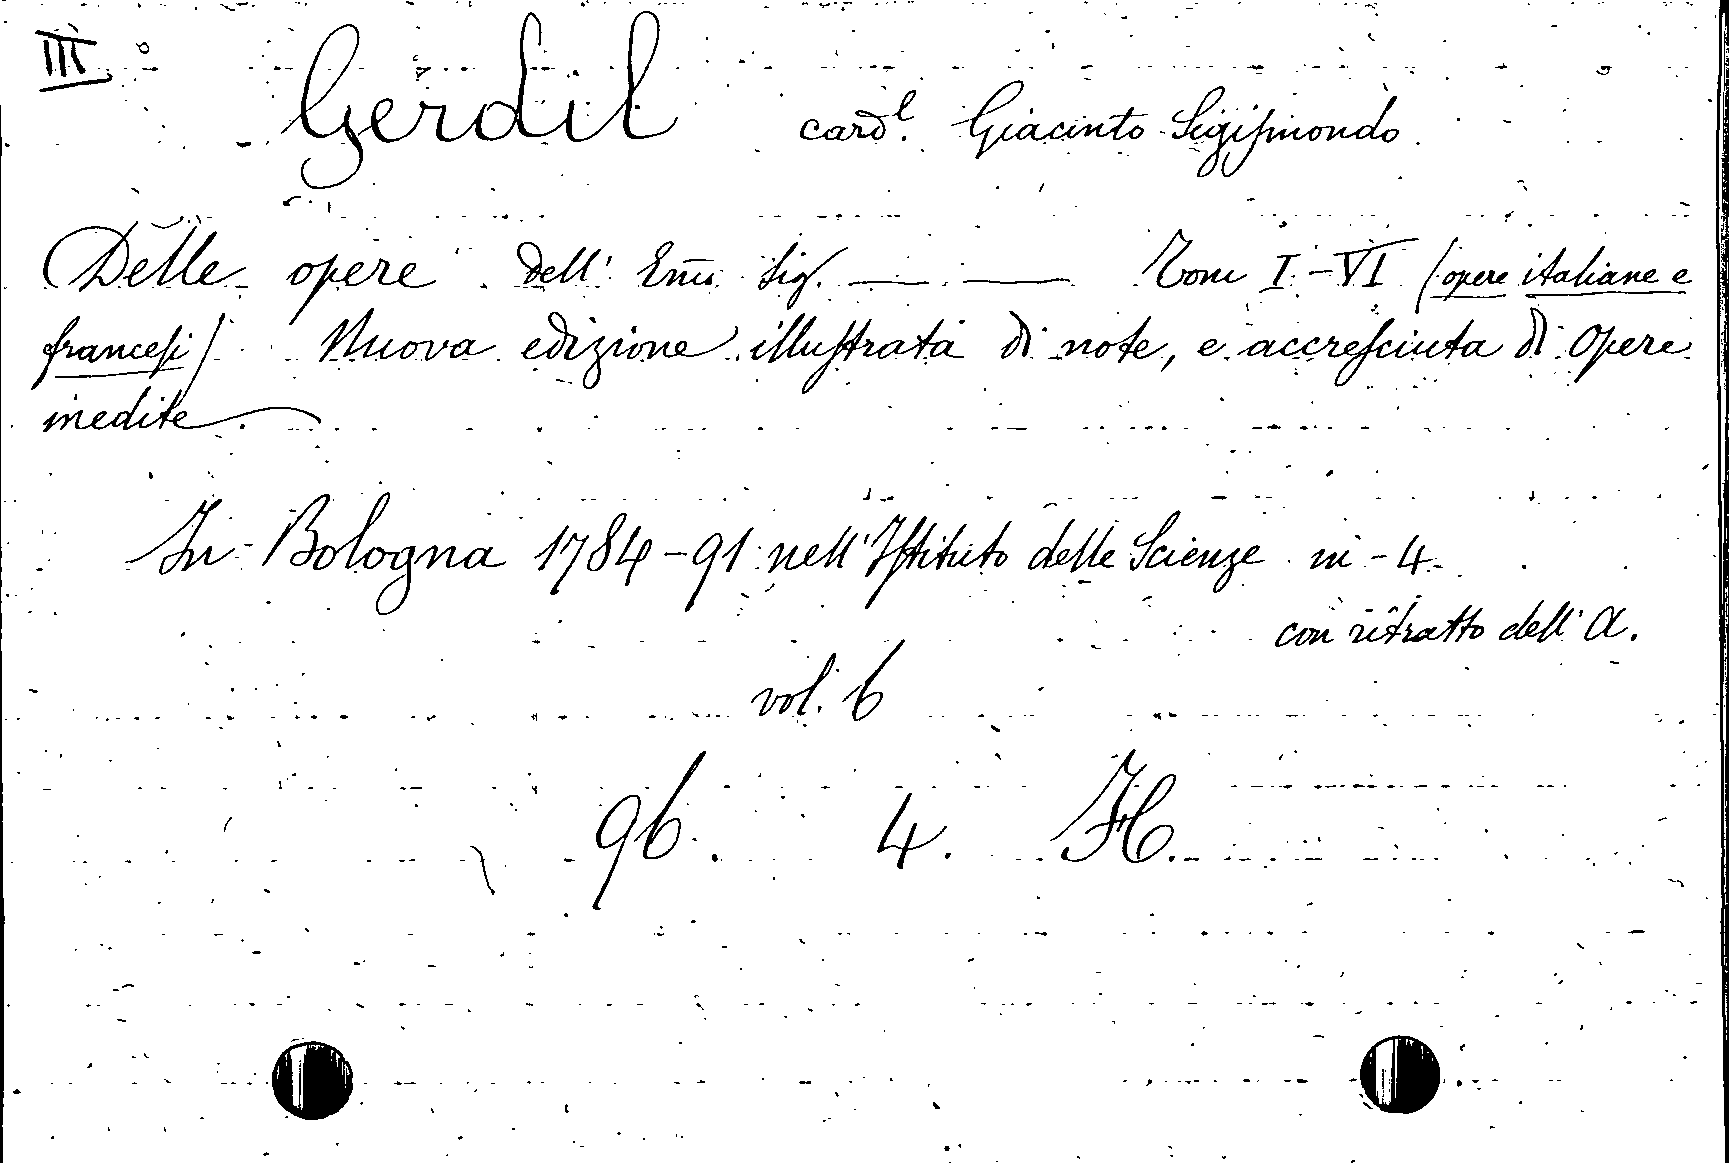 III
Gerdil card.l Giacinto Sigismondo
Delle opere dell' Emo Sig. — — Tom I-VI (opere italiane e
francesi) Nuova edizione illustrata di note, e accresciuta di opere
inedite.
In Bologna 1784-91 nell'Istituto delle Scienze in-4.
con ritratto dell'A.
vol. 6
96. 4. H.